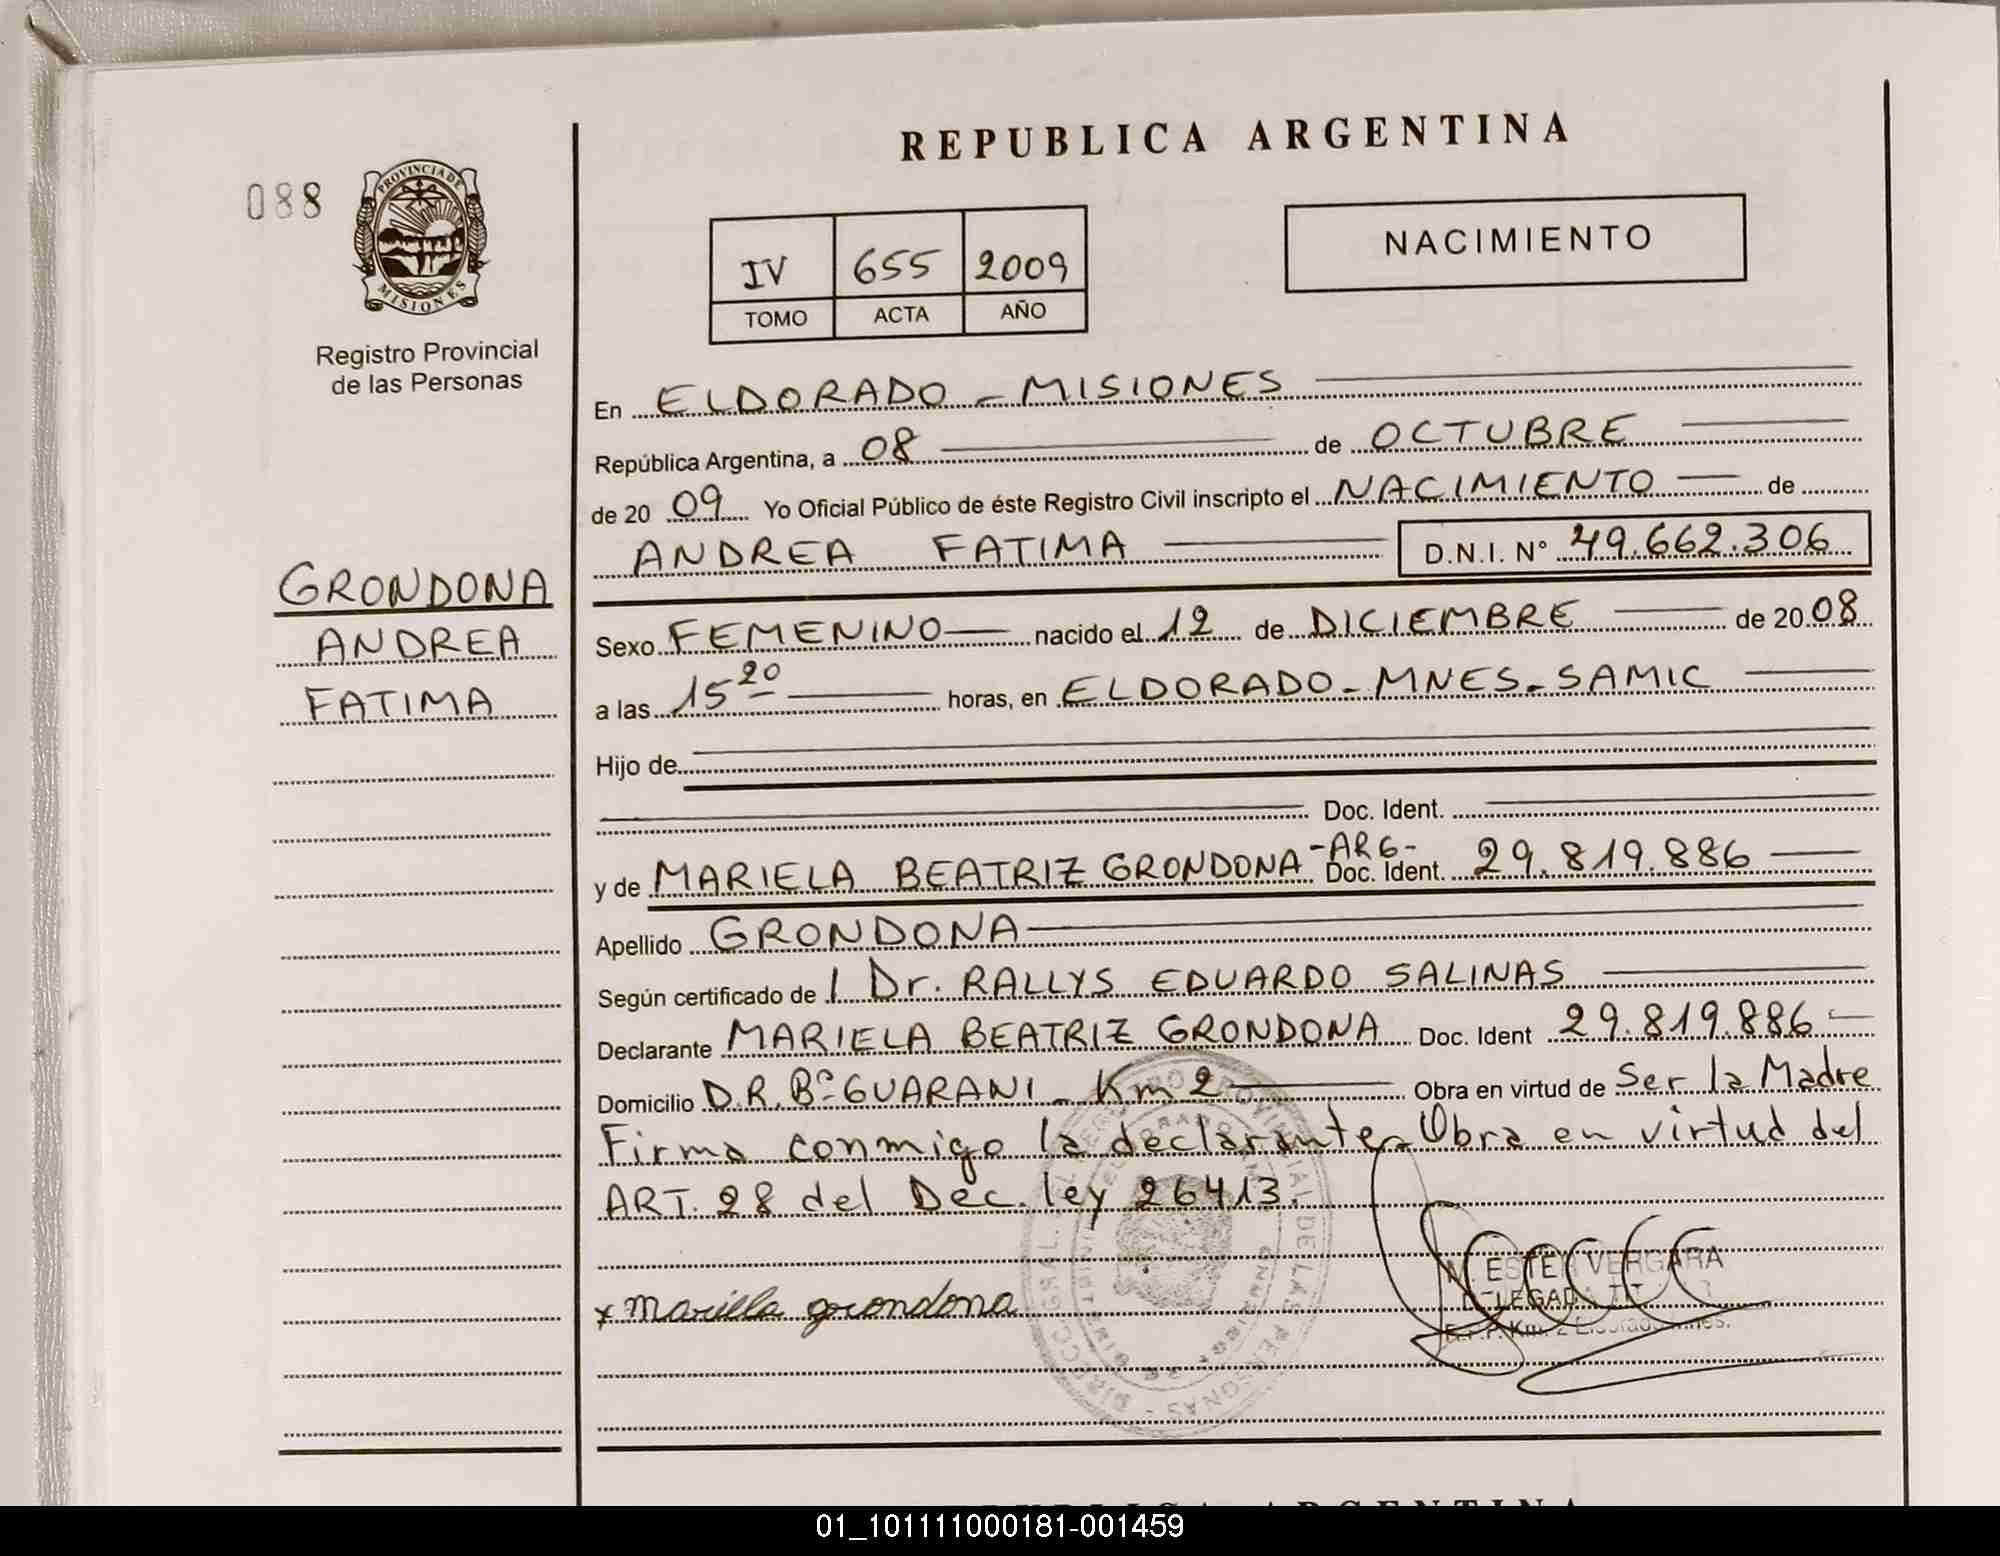 REPUBLICA ARGENTINA
088
PROVINCIA DE
MISIONES
Registro Provincial
de las Personas
IV 655 2009
TOMO ACTA AÑO
NACIMIENTO
GRONDONA
ANDREA
FATIMA
En ELDORADO - MISIONES
República Argentina, a 08 de OCTUBRE
de 20 09 Yo Oficial Público de éste Registro Civil inscripto el NACIMIENTO de
ANDREA FATIMA D.N.I. N° 49.662.306
Sexo FEMENINO nacido el 12 de DICIEMBRE de 20 08
a las 15 20 horas, en ELDORADO - MNES - SAMIC
Hijo de
Doc. Ident.
y de MARIELA BEATRIZ GRONDONA -ARG- Doc. Ident. 29.819.886
Apellido GRONDONA
Según certificado de / Dr. RALLYS EDUARDO SALINAS
Declarante MARIELA BEATRIZ GRONDONA Doc. Ident 29.819.886
Domicilio D.R. B° GUARANI - Km 2 Obra en virtud de Ser la Madre
Firma conmigo la declarante - Obra en virtud del
ART. 28 del Dec. ley 26413.
x mariela grondona
ESTER VERGARA
DELEGADA TIT
Km. 2 Eldorado Mnes.
REPUBLICA ARGENTINA
01_101111000181-001459